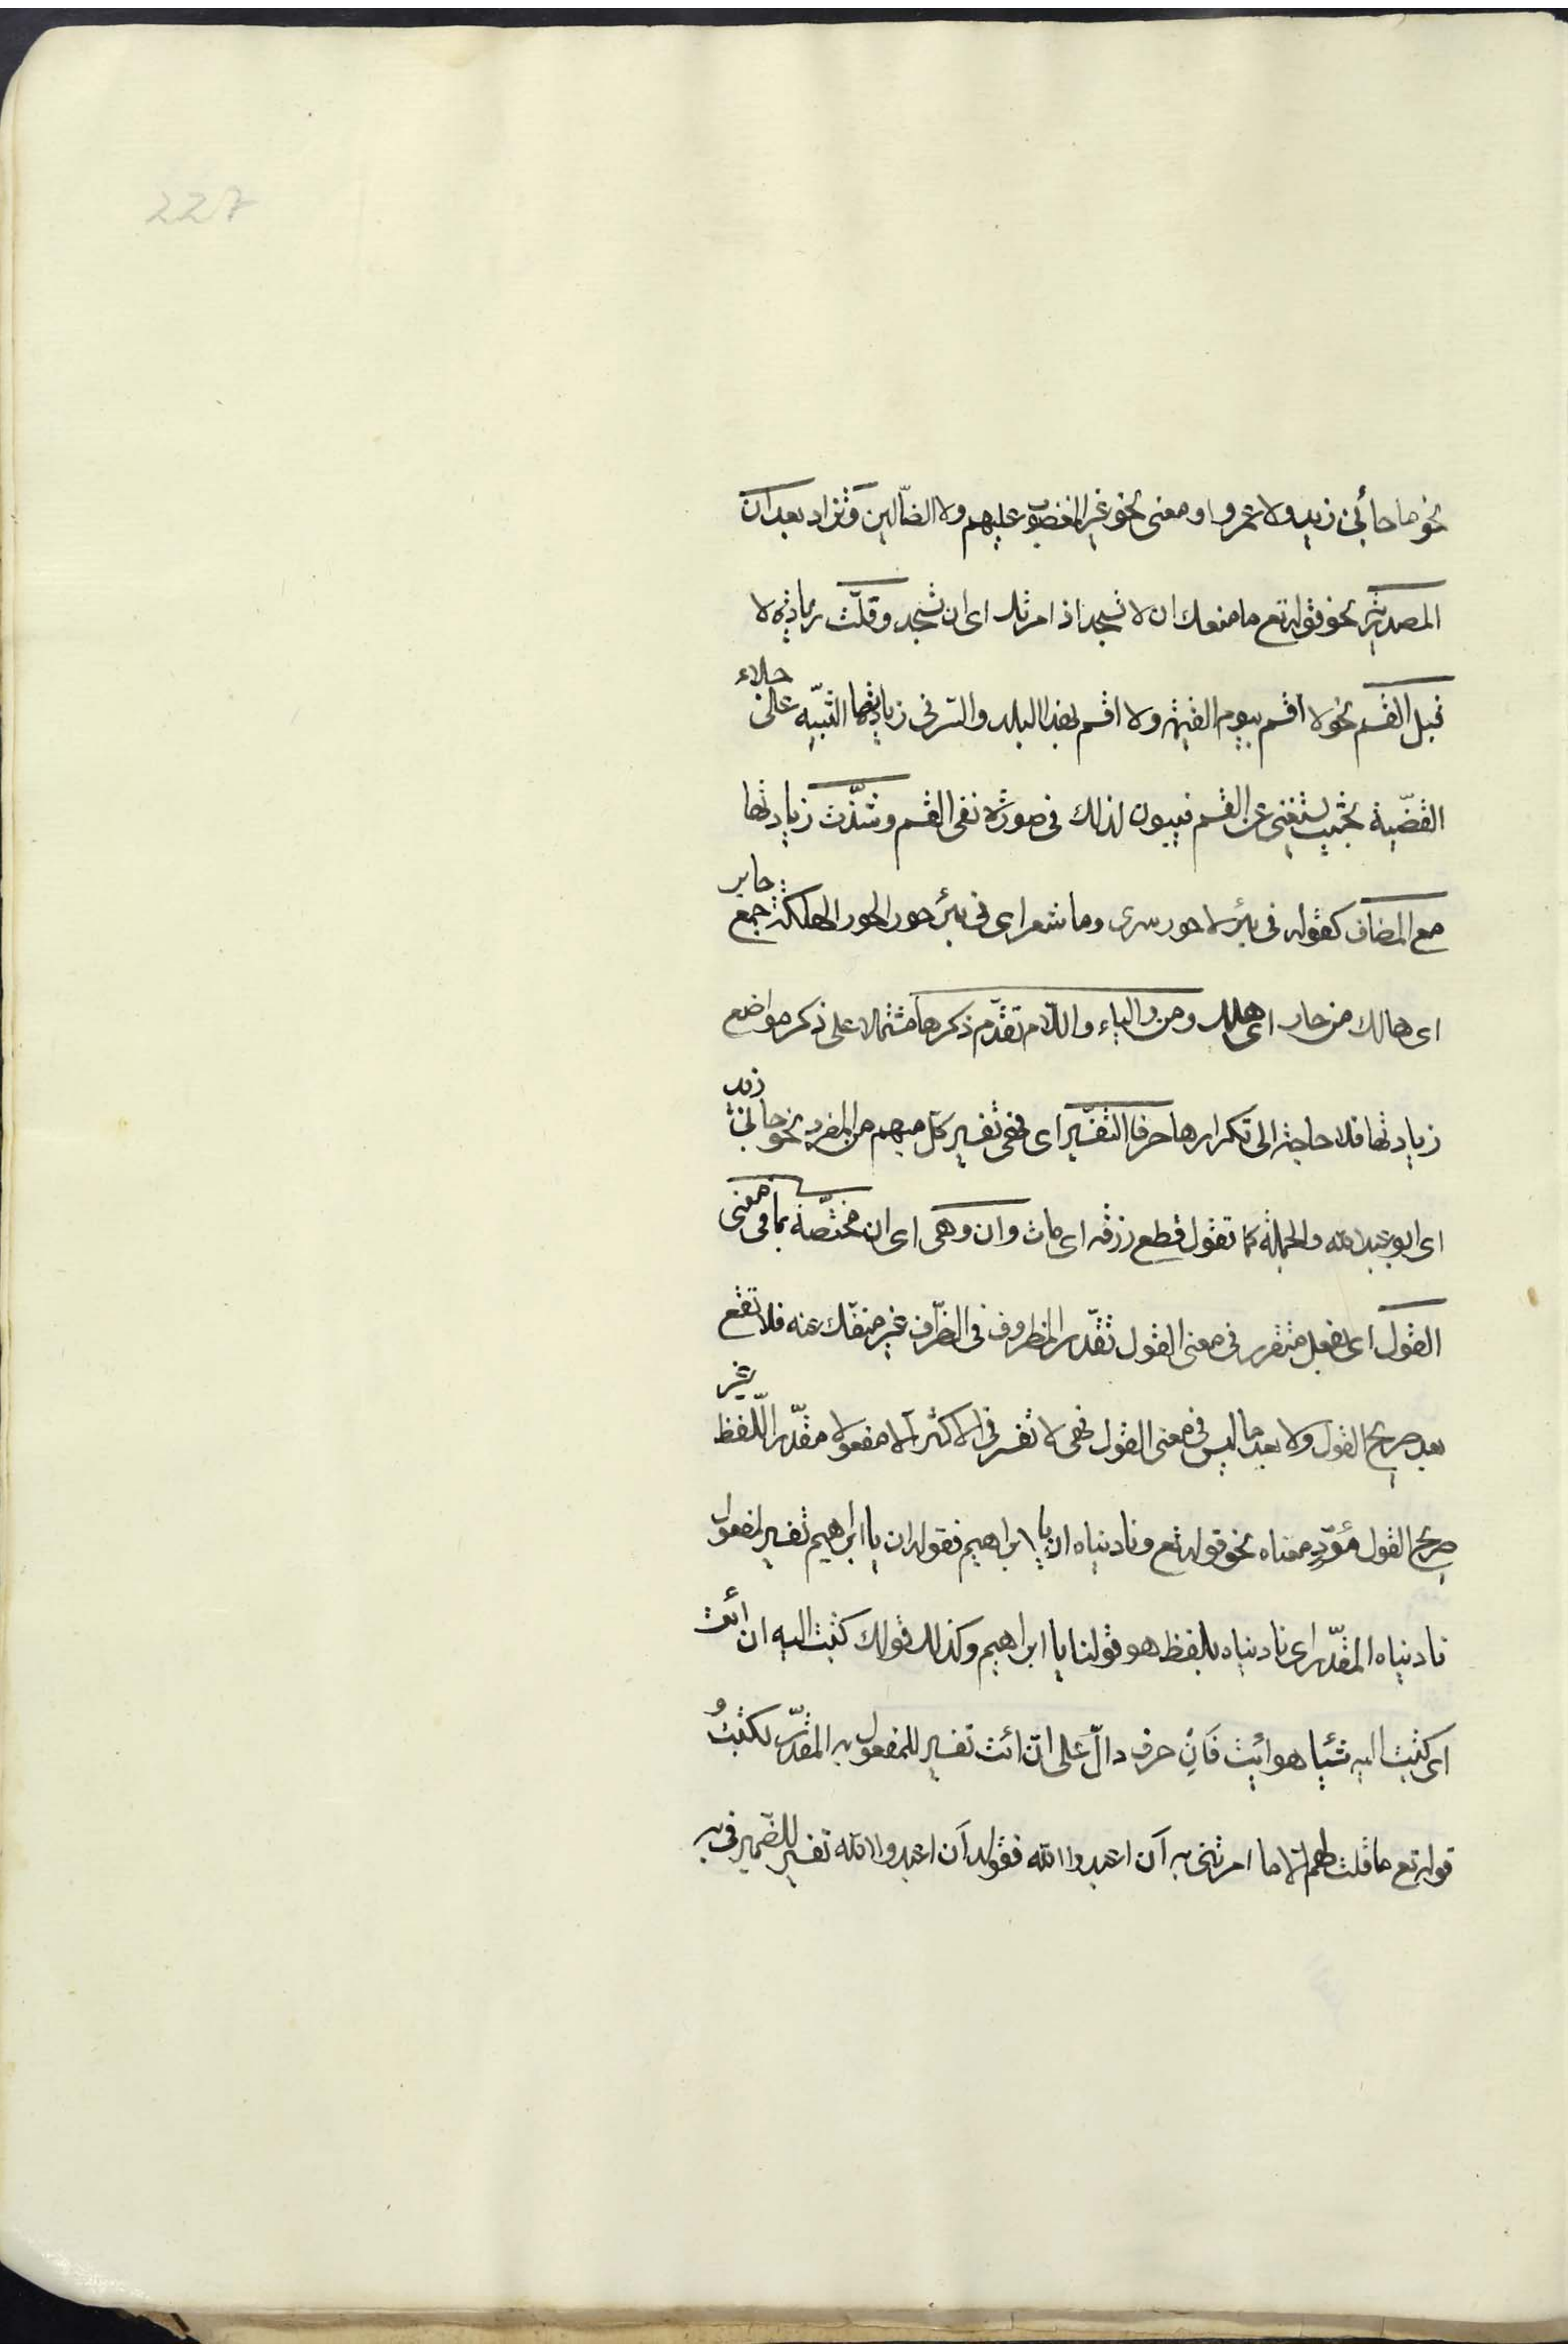 227
نحو ما جائنى زيد ولا عمرو او معنى نحو غير المغضوب عليهم ولا الضّالين وتزاد بعد ان
المصدرية نحو قوله تع ما منعك ان لا تسجد اذ امرتك اى ان تسجد وقلّت زيادة لا
قبل القسم نحو لا اقسم بيوم القيمة ولا اقسم بهذا البلد والسّر فى زيادتها التنبيه على جلاء
القضّية بحيث يستغنى عن القسم فيبرز لذلك فى صورة نفى القسم وشذّت زيادتها
مع المضاف كقوله فى بئر لا حور سرى وما شعر اى فى بئر حور الحور الهلكة جمع حاير
اى هالك من حار اى هلك ومن والباء واللّام تقدّم ذكرها مشتملا على ذكر مواضع
زيادتها فلا حاجة الى تكرارها حرفا التفسير اى فهى تفسير كل مبهم من المفرد نحو جائنى زيد
اى ابو عبد الله والجملة كما تقول قطع رزقه اى مات وان وهى اى ان مختصّة بما فى معنى
القول اى بفعل متقرر فى معنى القول تقدّر المظروف فى الظرف غير منفّك عنه فلا تقع
بعد صريح القول ولا بعد ما ليس فى معنى القول فهى لا تفسر فى الاكثر الا مفعولا مقدّرا للّفظ غير
صريح القول مؤدّ معناه نحو قوله تع وناديناه ان يا ابراهيم فقوله ان يا ابراهيم تفسير لمفعول
ناديناه المقدّر اى ناديناه بلفظ هو قولنا يا ابراهيم وكذلك قولك كتبت اليه ان ائت
اى كتبت اليه شيئا هو ائت فَاَنْ حرف دالّ على انّ ائت تفسير للمفعول به المقدّر لكتبت و
قوله تع ما قلت لهم الّا ما امرتنى به اَن اعبدوا الله فقوله اَن اعبدوا الله تفسير للضمير فى به